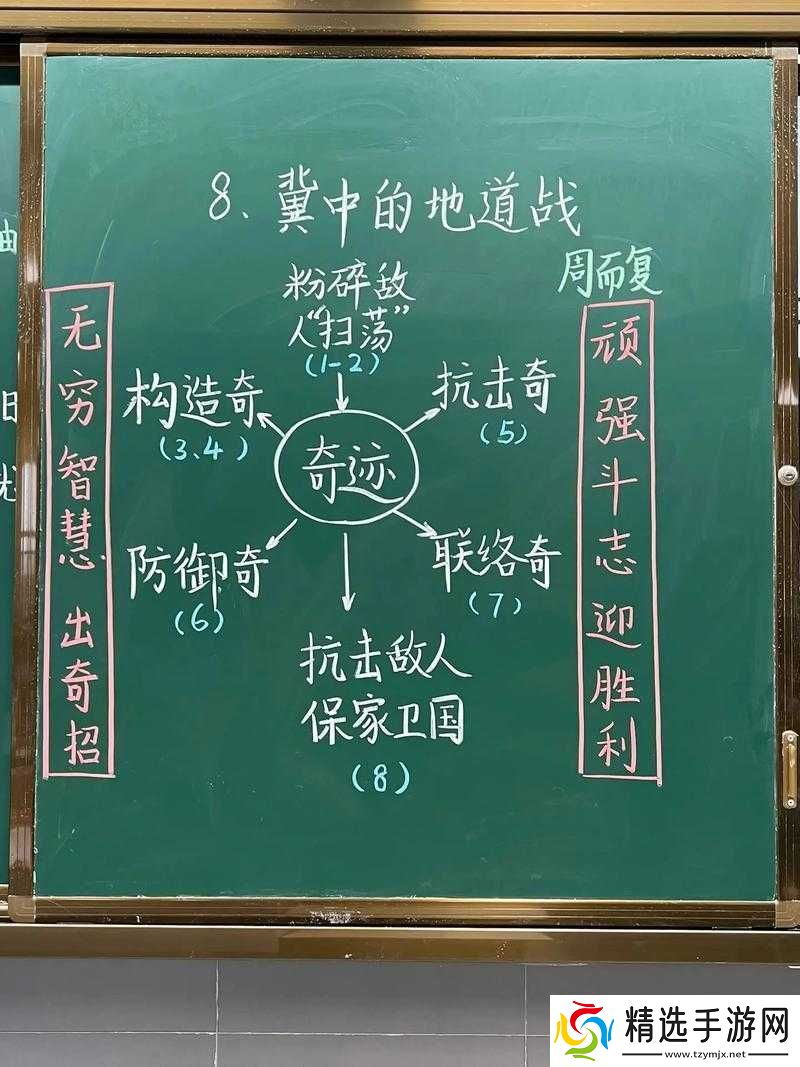 8、冀中的地道战
周而复
粉碎敌
人“扫荡”
(1-2)
构造奇
(3、4)
抗击奇
(5)
奇迹
防御奇
(6)
联络奇
(7)
抗击敌人
保家卫国
(8)
无穷智慧出奇招
顽强斗志迎胜利
由
日
精选手游网
www.tzymjx.net